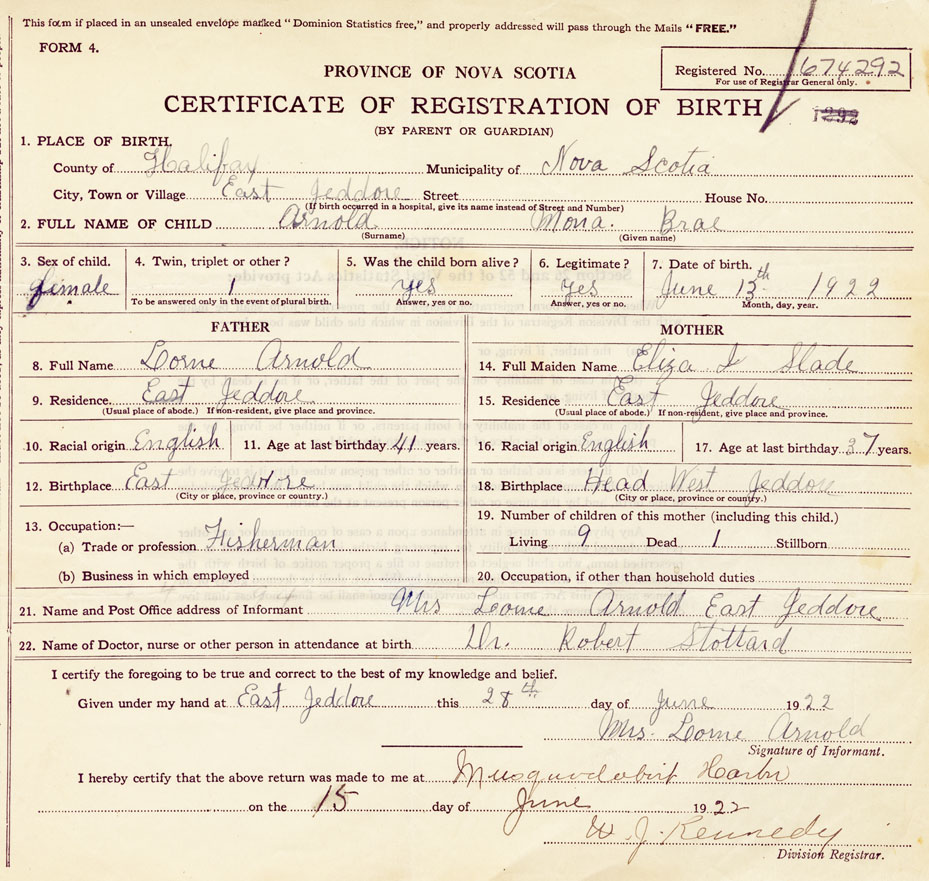 This form if placed in an unsealed envelope marked "Dominion Statistics free," and properly addressed will pass through the Mails "FREE."
FORM 4.
PROVINCE OF NOVA SCOTIA
Registered No. 674292
For use of Registrar General only.
CERTIFICATE OF REGISTRATION OF BIRTH
1292
(BY PARENT OR GUARDIAN)
1. PLACE OF BIRTH.
County of Halifax Municipality of Nova Scotia
City, Town or Village East Jeddore Street House No.
(If birth occurred in a hospital, give its name instead of Street and Number)
2. FULL NAME OF CHILD Arnold Mona. Brae
(Surname) (Given name)
3. Sex of child. 4. Twin, triplet or other? 5. Was the child born alive? 6. Legitimate? 7. Date of birth.
female 1 yes yes June 13th 1922
To be answered only in the event of plural birth. Answer, yes or no. Answer, yes or no. Month, day, year.
FATHER MOTHER
8. Full Name Lorne Arnold 14. Full Maiden Name Eliza Slade
9. Residence. East Jeddore 15. Residence East Jeddore
(Usual place of abode.) If non-resident, give place and province. (Usual place of abode.) If non-resident, give place and province.
10. Racial origin English 11. Age at last birthday 41 years. 16. Racial origin English 17. Age at last birthday 37 years.
12. Birthplace East Jeddore 18. Birthplace Head West Jeddore
(City or place, province or country.) (City or place, province or country.)
13. Occupation:— 19. Number of children of this mother (including this child.)
(a) Trade or profession Fisherman Living 9 Dead 1 Stillborn
(b) Business in which employed 20. Occupation, if other than household duties
21. Name and Post Office address of Informant Mrs Lorne Arnold East Jeddore
22. Name of Doctor, nurse or other person in attendance at birth Dr. Robert Stottard
I certify the foregoing to be true and correct to the best of my knowledge and belief.
Given under my hand at East Jeddore this 28th day of June 1922
Mrs. Lorne Arnold
Signature of Informant.
I hereby certify that the above return was made to me at Musquodobit Harbr
on the 15 day of June 1922
W. J. Kennedy
Division Registrar.